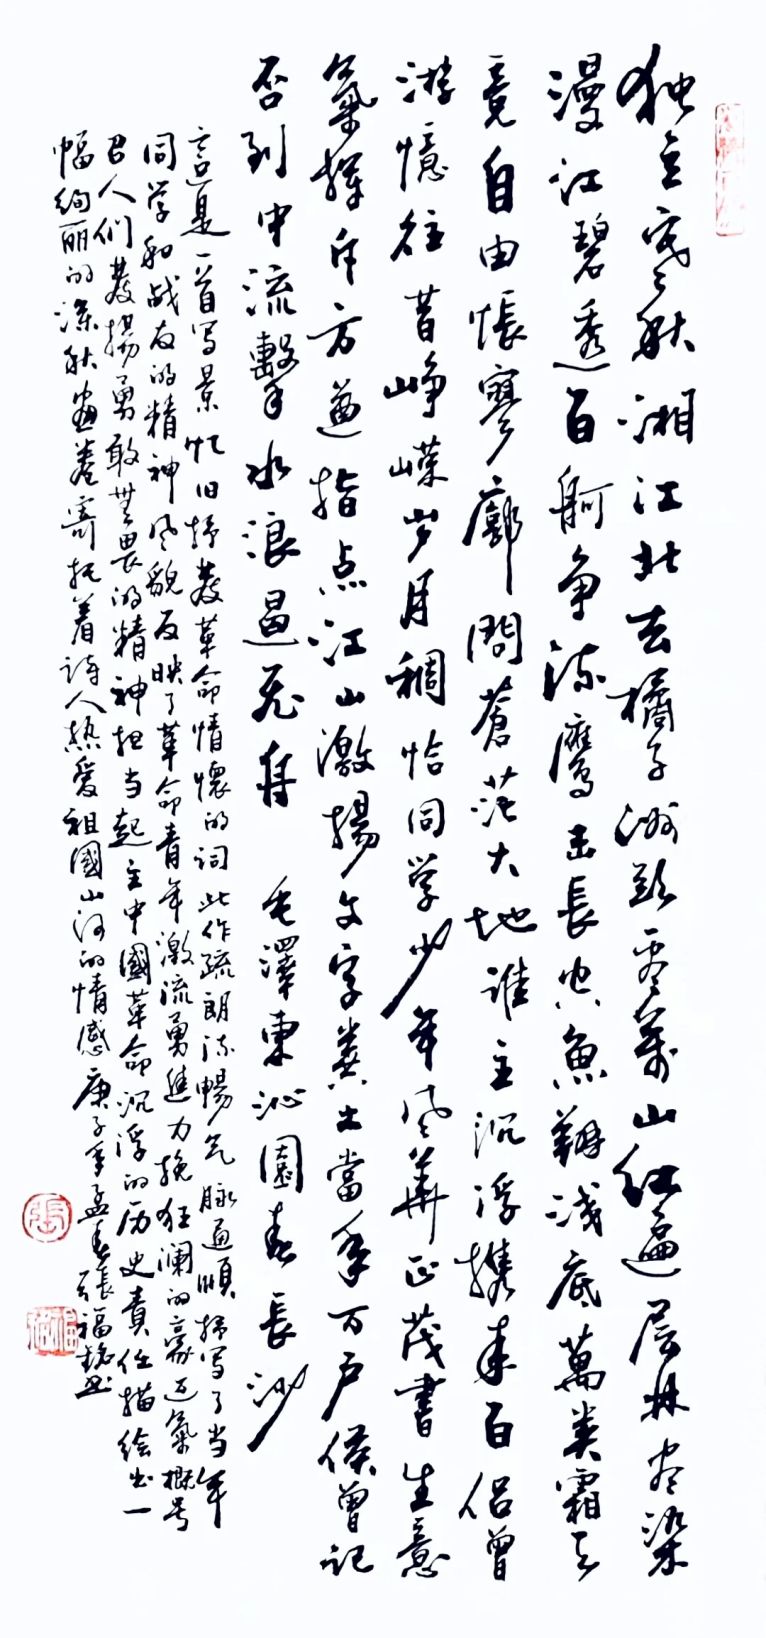 独立寒秋湘江北去橘子洲头看萬山红遍层林尽染
漫江碧透百舸争流鹰击長空魚翔浅底萬类霜天
竞自由悵寥廓問蒼茫大地谁主沉浮携来百侣曾
游憶往昔峥嵘岁月稠恰同学少年风華正茂書生意
氣揮斥方遒指点江山激揚文字粪土當年万户侯曾记
否到中流擊水浪遏飞舟 毛澤東沁園春長沙
這是一首写景忆旧抒發革命情懷的词此作疏朗流暢气脉通順描写了当年
同学和战友的精神风貌反映了革命青年激流勇進力挽狂澜的豪迈氣概号
召人们發揚勇敢無畏的精神担当起主中國革命沉浮的历史責任描绘出一
幅绚丽的深秋画卷寄托着詩人熱爱祖國山河的情感庚子年孟春張福銘书
張